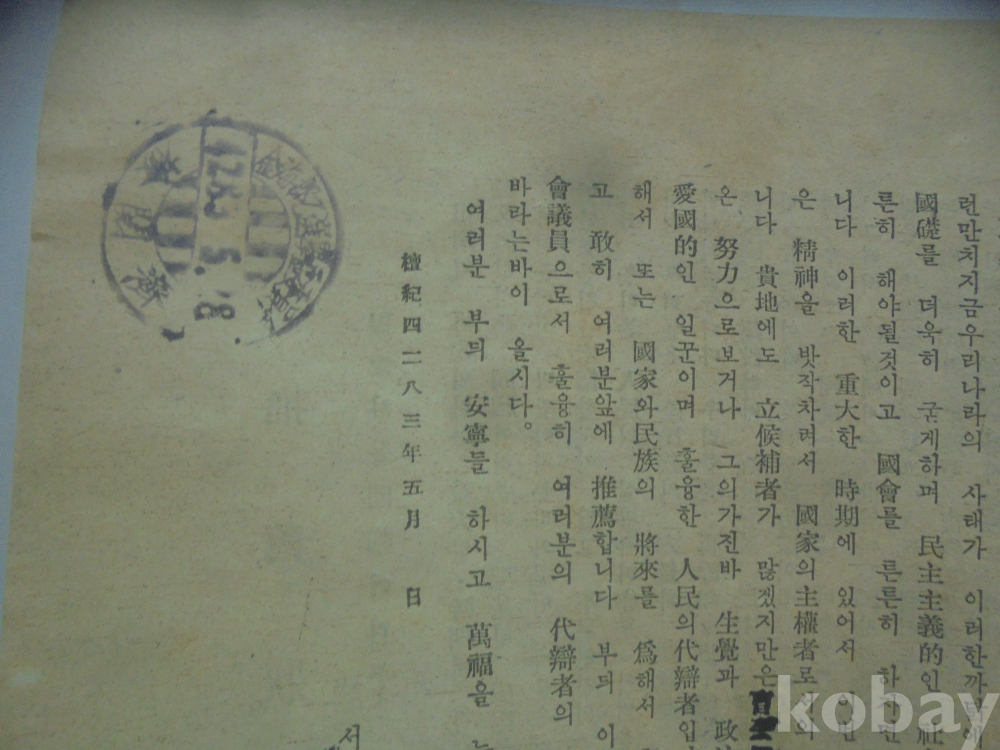 련만치지금우리나라의 사태가 이러한까닭에
國礎를 더욱히 굳게하며 民主主義的인 社
른히 해야될것이고 國會를 른른히 하자면
니다 이러한 重大한 時期에 있어서 이번
은 精神을 밧작차려서 國家의主權者로서의
니다 貴地에도 立候補者가 많겠지만은
온 努力으로보거나 그의가진바 生覺과 政治
愛國的인 일꾼이며 훌융한 人民의代辯者입
해서 또는 國家와民族의 將來를 爲해서
고 敢히 여러분앞에 推薦합니다 부듸 이
會議員으로서 훌융히 여러분의 代辯者의
바라는바이 올시다。
여러분 부듸 安寧들 하시고 萬福을
檀紀四二八三年五月 日
서
4283. 5. 8
kobay